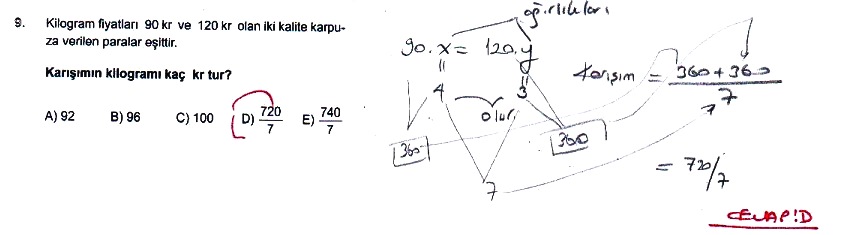 9. Kilogram fiyatları 90 kr ve 120 kr olan iki kalite karpu-
za verilen paralar eşittir.
Karışımın kilogramı kaç kr tur?
A) 92 B) 96 C) 100 D) 720/7 E) 740/7
ağırlıkları
90.x = 120.y
4 3
olur.
360 360
7
Karışım = 360+360
7
= 720/7
CEVAP:D